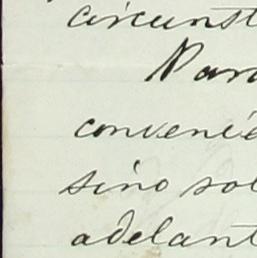 circunst
Para
convenie
sino sol
adelant